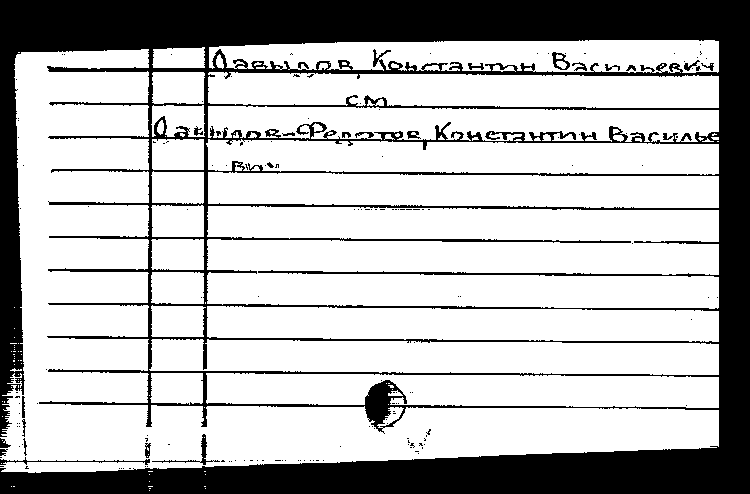 Давыдов, Константин Васильевич
см.
Давыдов-Федотов, Константин Василье
вич